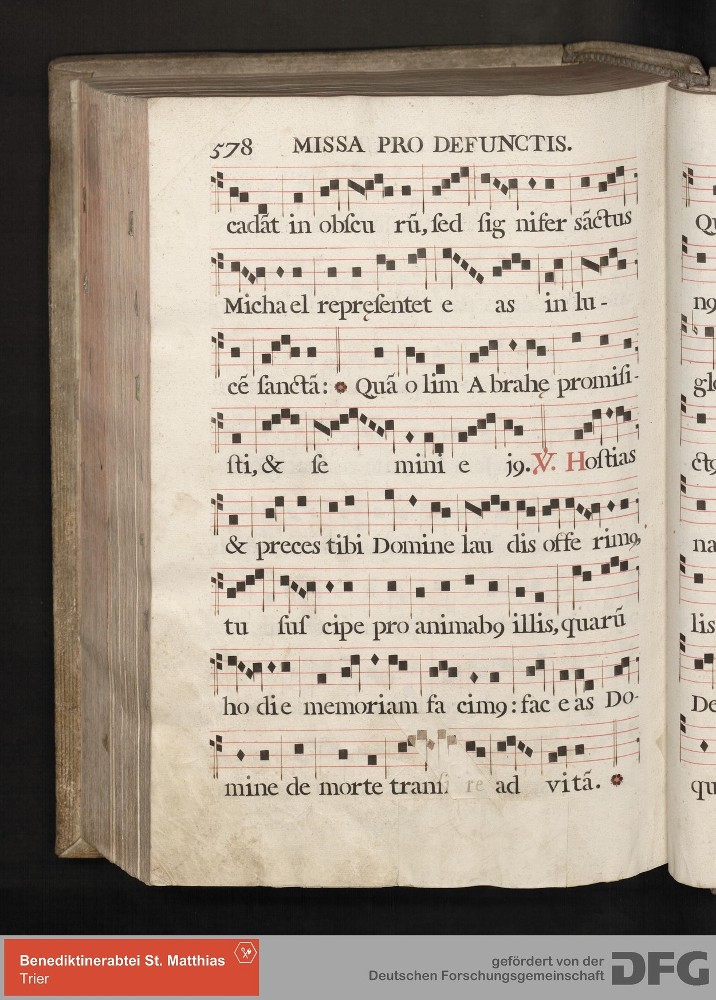 578 MISSA PRO DEFUNCTIS.
cadãt in obſcu rũ, ſed ſig nifer sãctus
Micha el repręſentet e as in lu-
cẽ ſanctã: Quã o lim A brahę promiſi-
ſti, & ſe mini e j9. V. Hoſtias
& preces tibi Domine lau dis offe rim9,
tu ſuſ cipe pro animab9 illis, quarũ
ho die memoriam fa cim9: fac e as Do-
mine de morte tranſi re ad vitã.
Qu
n9
glo
ct9
na
lis
De
qu
Benediktinerabtei St. Matthias
Trier
gefördert von der
Deutschen Forschungsgemeinschaft
DFG